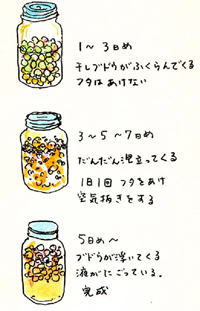 1〜3日め
干しブドウがふくらんでくる
フタはあけない
3〜5〜7日め
だんだん泡立ってくる
1日1回フタをあけ
空気抜きをする
5日め〜
ブドウが浮いてくる
液がにごっている。
完成